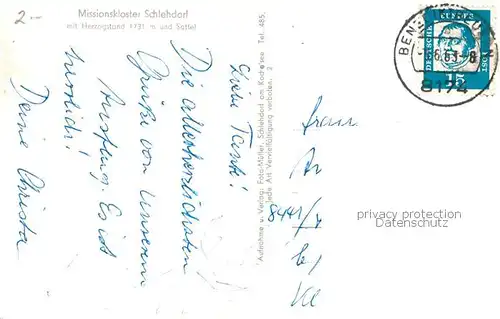 2.-
Missionskloster Schlehdorf
mit Herzogstand 1731 m und Sattel
Liebe Tante!
Die allerherzlichsten
Grüße von unserem
Ausflug. Es ist
herrlich!
Deine Christa
Aufnahme u. Verlag: Foto-Müller, Schlehdorf am Kochelsee Tel. 485.
Jede Art Vervielfältigung verboten. 2
DEUTSCHE BUNDESPOST
15
6.63-8
8174
Frau
8441/
privacy protection
Datenschutz